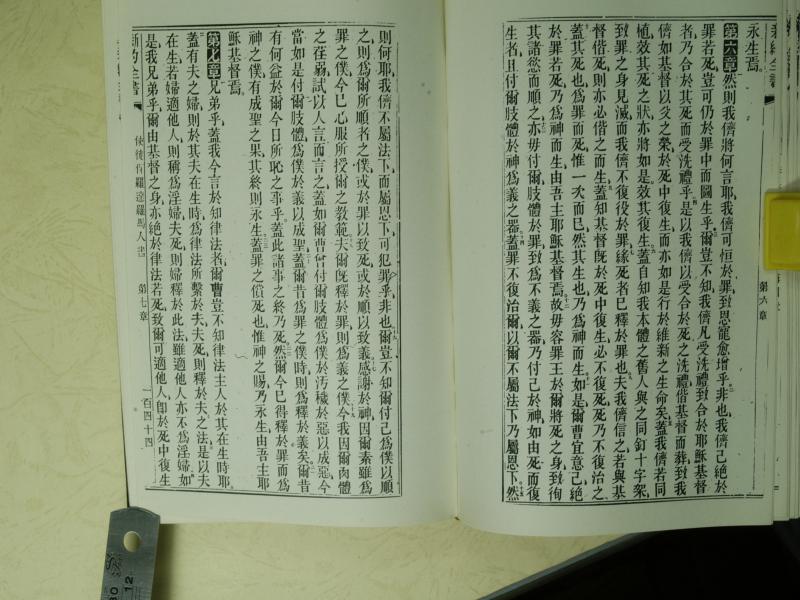 永生焉
第六章 然則我儕將何言耶我儕可恒於罪致恩寵愈增乎非也我儕已絕於
罪若死豈可仍於罪中而圖生乎爾豈不知我儕凡受洗禮致合於耶穌基督
者乃合於其死而受洗禮乎是以我儕以受合於死之洗禮偕基督而葬致我
儕如基督以父之榮於死中復生而亦如是行於維新之生命矣蓋我儕若同
植效其死之狀亦將如是效其復生蓋自知我本體之舊人與之同釘十字架
致罪之身見滅而我儕不復役於罪緣死者已釋於罪也夫我儕信之若與基
督偕死則亦必偕之而生蓋知基督既於死中復生必不復死死乃不復治之
蓋其死也爲罪而死惟一次而已然其生也乃爲神而生如是爾曹宜意己絕
於罪若死乃爲神而生由吾主耶穌基督焉故毋容罪王於爾將死之身致徇
其諸慾而順之亦毋付爾肢體於罪致爲不義之器乃付己於神如由死而復
生者且付爾肢體於神爲義之器蓋罪不復治爾以爾不屬法下乃屬恩下然
第六章
則何耶我儕不屬法下而屬恩下可犯罪乎非也爾豈不知爾付己爲僕以順
之則爲爾所順者之僕或於罪以致死或於順以致義感謝於神因爾素雖爲
罪之僕今已心服所授爾之教範夫爾既釋於罪則爲義之僕今我因爾肉體
之荏弱試以人言而言之蓋如爾曹昔付爾肢體爲僕於汚穢於惡以成惡今
當如是付爾肢體爲僕於義以成聖蓋爾昔爲罪之僕時則爲釋於義矣爾昔
有何益於爾今日所恥之事乎蓋此諸事之終乃死然爾今已得釋於罪而爲
神之僕有成聖之果其終則永生蓋罪之値死也惟神之賜乃永生由吾主耶
穌基督焉
第七章 兄弟乎蓋我今言於知律法者爾曹豈不知律法主人於其在生時耶
蓋有夫之婦則於其夫在生時爲律法所繫於夫夫死則釋於夫之法是以夫
在生若婦適他人則稱爲淫婦夫死則婦釋於此法雖適他人亦不爲淫婦如
是我兄弟乎爾由基督之身亦絕於律法若死致爾可適他人卽於死中復生
新約全書
使徒保羅達羅馬人書
第七章
一百四十四